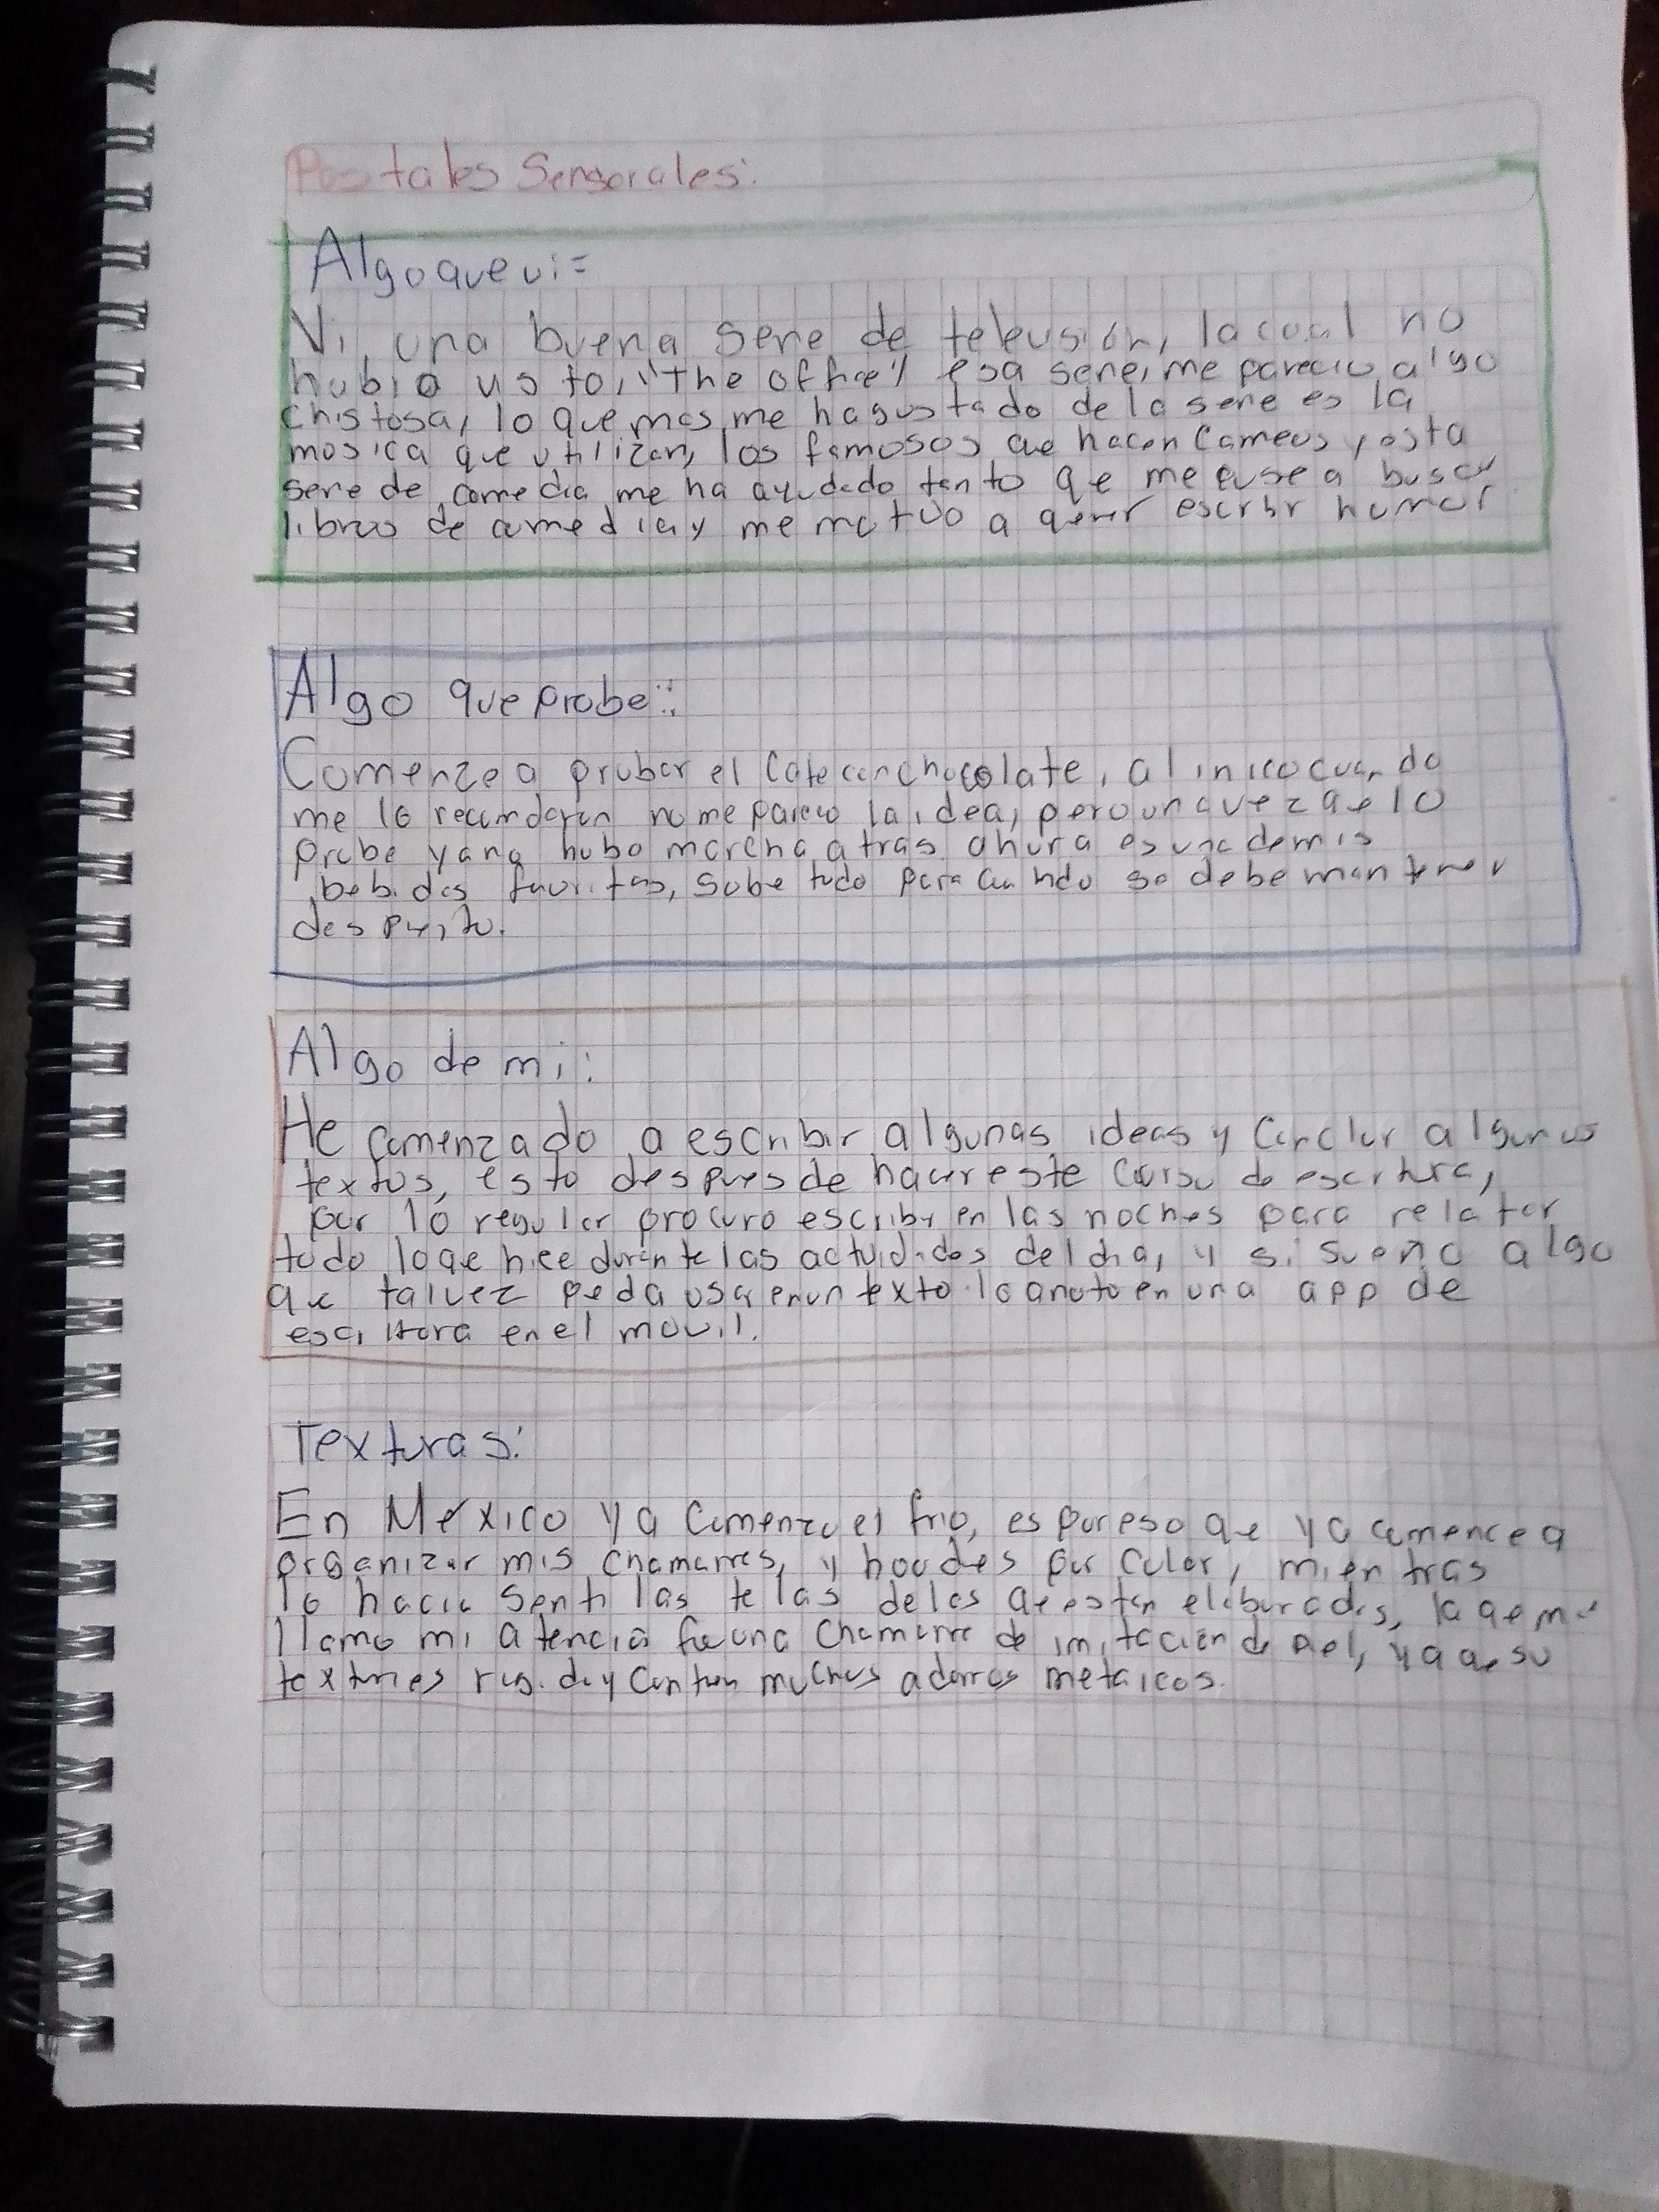 Postales Sensorales:
Algo que vi=
Vi, una buena serie de television, la cual no
habia visto, "The office", esa serie, me parecio algo
chistosa, lo que mas me ha gustado de la serie es la
musica que utilizan, los famosos que hacen Cameos, y esta
serie de comedia me ha ayudado tanto qe me puse a buscar
libros de comedia, y me motivo a querer escribir humor
Algo que probe:
Comenze a probar el Cafe con chocolate, al inicio cuando
me lo recomdaron no me parecio la idea, pero una vez qe lo
probe ya no hubo marcha atras. ahora es una de mis
bebidas favoritas, sobe todo para cuando se debe mantener
despierto.
Algo de mi:
He comenzado a escribir algunas ideas y Concluir algunos
textos, esto despues de hacer este Curso de escritura,
por lo regular procuro escribir en las noches para relatar
todo lo qe hice durante las actividades del dia, y si sueño algo
que talvez peda usar en un texto lo anoto en una app de
escritura en el movil.
Texturas:
En Mexico ya Comenzo el frio, es por eso qe ya comence a
organizar mis chamarras, y hoodies por Color, mientras
lo hacia senti las telas de las qe estan elaboradas, la qe me
llamo mi atencia fue una Chamarra de imitacion de piel, ya qe su
textura es rigida y contien muchos adornos metalicos.